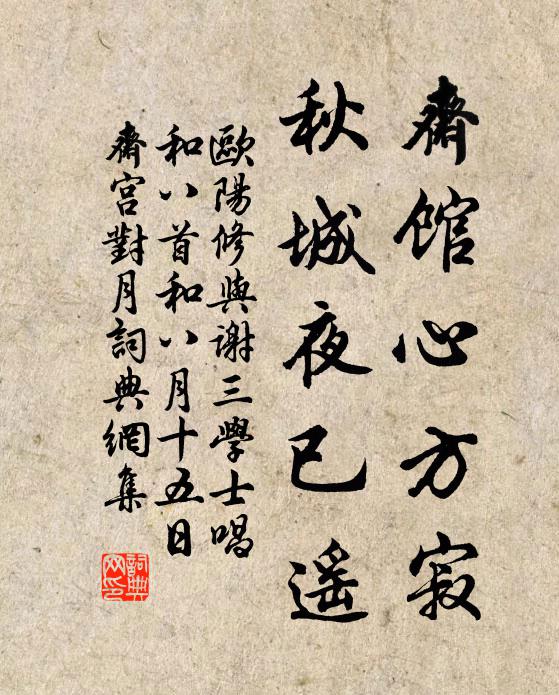 齋館心方寂
秋城夜已遥
歐陽修與謝三學士唱
和八首和八月十五日
齋宮對月詞典網集
詞典
网印